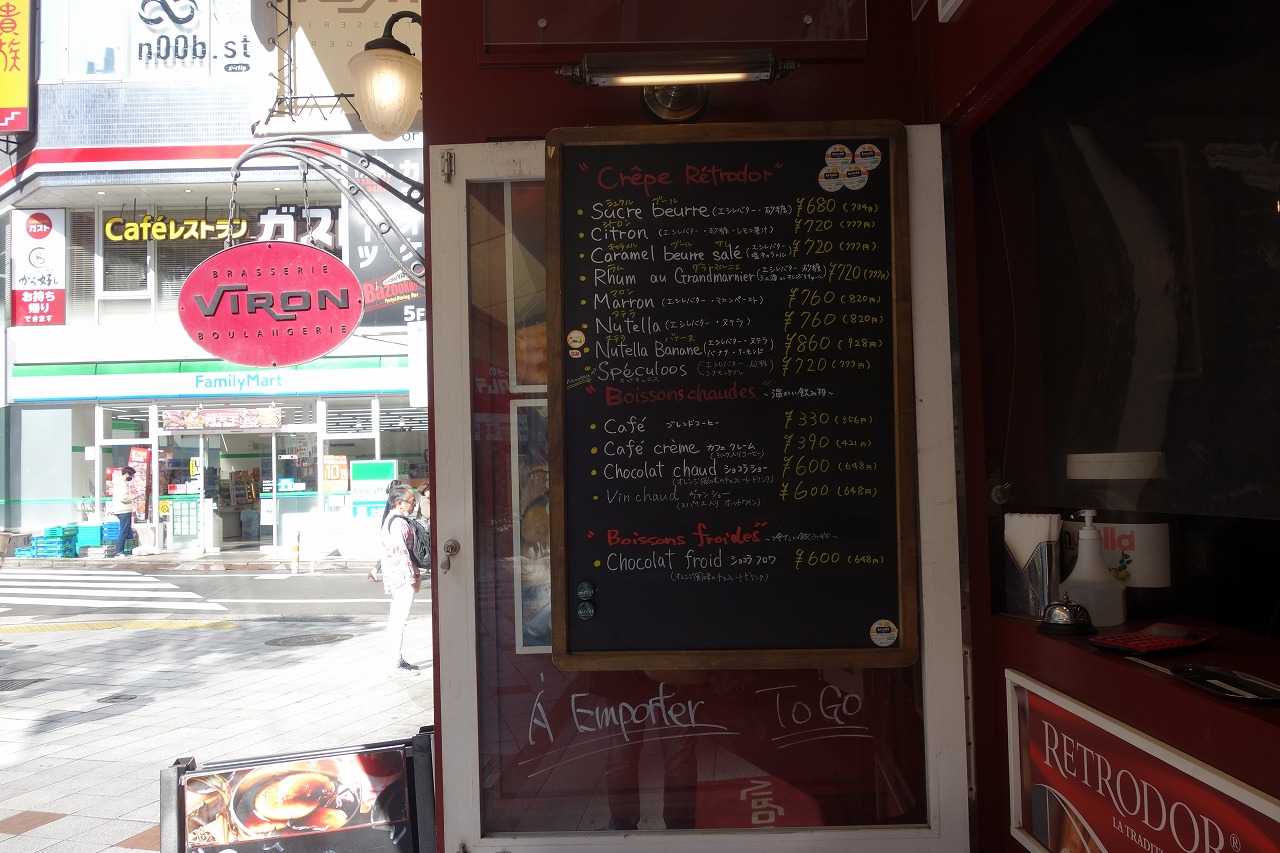 貴族
n00b.st
Caféレストラン ガスト
ガスト
から好し
お持ち
帰り
できます
BRASSERIE
VIRON
BOULANGERIE
Bazooka
5F
FamilyMart
"Crêpe Rétrodor"
シュクル ブール
Sucre beurre (エシレバター・砂糖) ¥680 (734円)
シトロン
Citron (エシレバター・砂糖・レモン果汁) ¥720 (777円)
キャラメル ブール サレ
Caramel beurre salé (エシレバター・塩キャラメル) ¥720 (777円)
ラム グランマルニエ
Rhum au Grandmarnier (エシレバター・砂糖 ¥720 (777円)
マロン
Marron (エシレバター・マロンペースト) ¥760 (820円)
ヌテラ
Nutella (エシレバター・ヌテラ) ¥760 (820円)
ヌテラ バナーヌ
Nutella Banane (エシレバター・ヌテラ バナナ・アーモンド ¥860 (928円)
Spéculoos (エシレバター・砂糖 ¥720 (777円)
スペキュロス
"Boissons chaudes" ~温かい飲み物~
Café ブレンドコーヒー ¥330 (356円)
Café crème カフェクレーム ¥390 (421円)
(ミルク入りコーヒー)
Chocolat chaud ショコラショー ¥600 (648円)
(オレンジ風味のチョコレートドリンク)
Vin chaud ヴァンショー ¥600 (648円)
(スパイス入りホットワイン)
"Boissons froides" ~冷たい飲み物~
Chocolat froid ショコラフロワ ¥600 (648円)
(オレンジ風味のチョコレートドリンク)
Á Emporter To Go
RETRODOR®